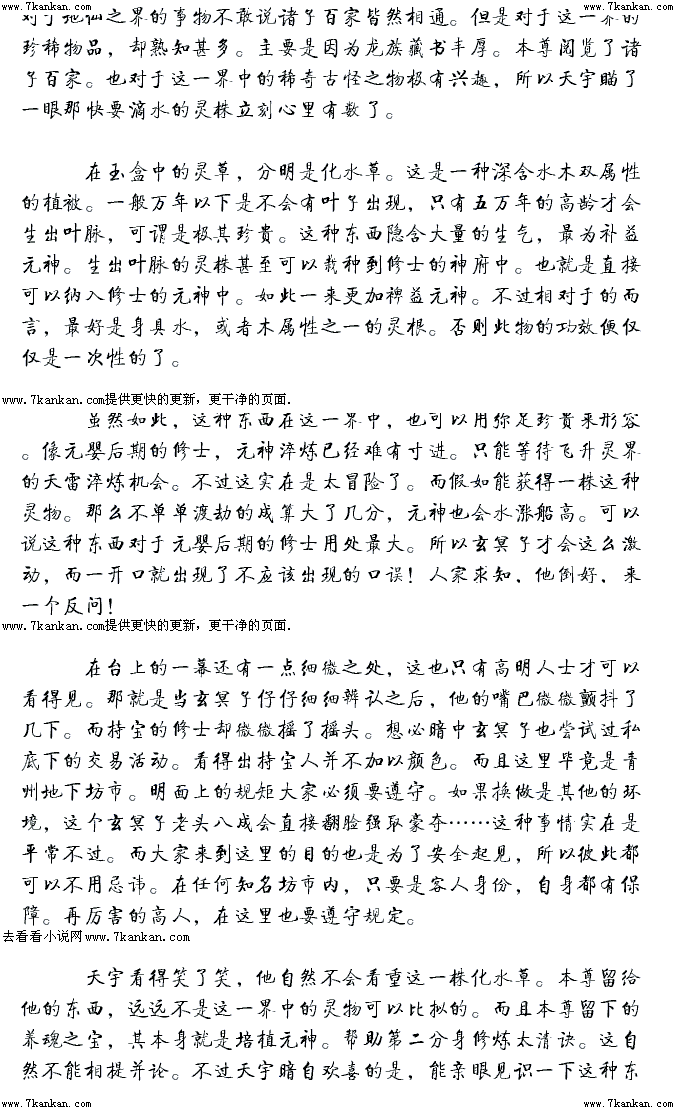 www.7kankan.com www.7kankan.com
对于地仙之界的事物不敢说诸子百家皆然相通。但是对于这一界的
珍稀物品，却熟知甚多。主要是因为龙族藏书丰厚。本尊阅览了诸
子百家。也对于这一界中的稀奇古怪之物极有兴趣，所以天宇瞄了
一眼那快要滴水的灵株立刻心里有数了。
在玉盒中的灵草，分明是化水草。这是一种深含水木双属性
的植被。一般万年以下是不会有叶子出现，只有五万年的高龄才会
生出叶脉，可谓是极其珍贵。这种东西隐含大量的生气，最为补益
元神。生出叶脉的灵株甚至可以栽种到修士的神府中。也就是直接
可以纳入修士的元神中。如此一来更加裨益元神。不过相对于的而
言，最好是身具水，或者木属性之一的灵根。否则此物的功效便仅
仅是一次性的了。
www.7kankan.com提供更快的更新，更干净的页面.
虽然如此，这种东西在这一界中，也可以用弥足珍贵来形容
。像元婴后期的修士，元神淬炼已经难有寸进。只能等待飞升灵界
的天雷淬炼机会。不过这实在是太冒险了。而假如能获得一株这种
灵物。那么不单单渡劫的成算大了几分，元神也会水涨船高。可以
说这种东西对于元婴后期的修士用处最大。所以玄冥子才会这么激
动，而一开口就出现了不应该出现的口误！人家求知，他倒好，来
一个反问！
www.7kankan.com提供更快的更新，更干净的页面.
在台上的一幕还有一点细微之处，这也只有高明人士才可以
看得见。那就是当玄冥子仔仔细细辨认之后，他的嘴巴微微颤抖了
几下。而持宝的修士却微微摇了摇头。想必暗中玄冥子也尝试过私
底下的交易活动。看得出持宝人并不加以颜色。而且这里毕竟是青
州地下坊市。明面上的规矩大家必须要遵守。如果换做是其他的环
境，这个玄冥子老头八成会直接翻脸强取豪夺……这种事情实在是
平常不过。而大家来到这里的目的也是为了安全起见，所以彼此都
可以不用忌讳。在任何知名坊市内，只要是客人身份，自身都有保
障。再厉害的高人，在这里也要遵守规定。
去看看小说网www.7kankan.com
天宇看得笑了笑，他自然不会看重这一株化水草。本尊留给
他的东西，远远不是这一界中的灵物可以比拟的。而且本尊留下的
养魂之宝，其本身就是培植元神。帮助第二分身修炼太清诀。这自
然不能相提并论。不过天宇暗自欢喜的是，能亲眼见识一下这种东
www.7kankan.com www.7kankan.com